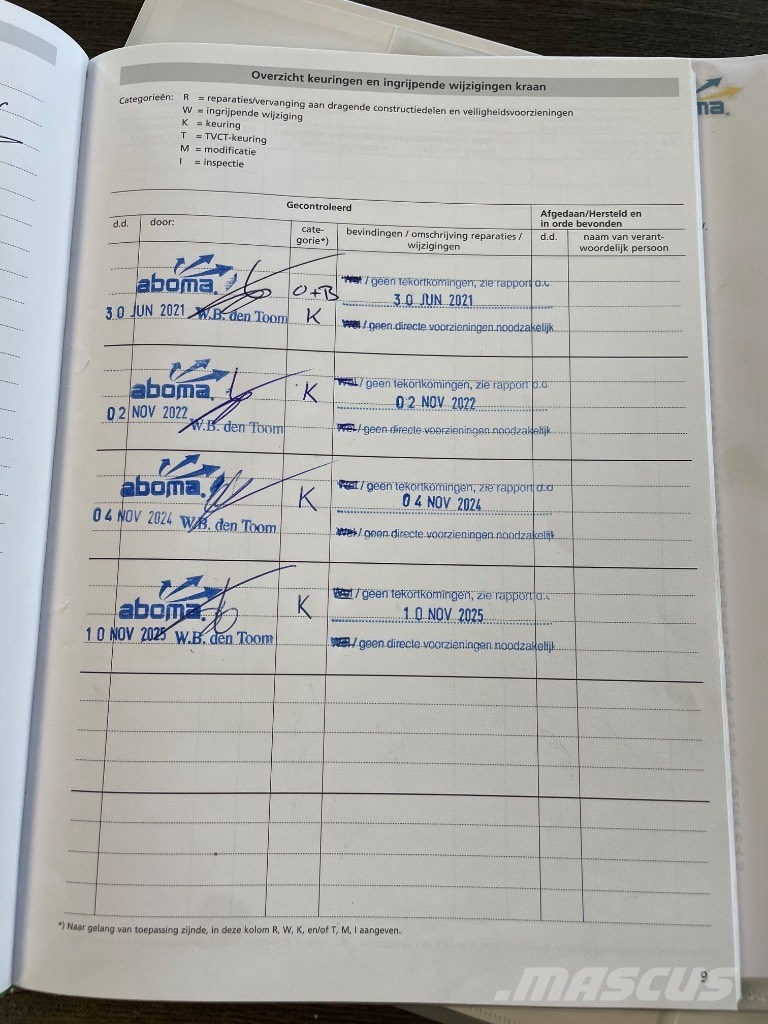 Overzicht keuringen en ingrijpende wijzigingen kraan
Categorieën: R = reparaties/vervanging aan dragende constructiedelen en veiligheidsvoorzieningen
W = ingrijpende wijziging
K = keuring
T = TVCT-keuring
M = modificatie
I = inspectie
Gecontroleerd
Afgedaan/Hersteld en
in orde bevonden
d.d.
door:
cate-
gorie*)
bevindingen / omschrijving reparaties /
wijzigingen
d.d.
naam van verant-
woordelijk persoon
aboma.
30 JUN 2021 W.B. den Toom
O+B
K
Wel / geen tekortkomingen, zie rapport d.d
30 JUN 2021
Wel / geen directe voorzieningen noodzakelijk
aboma.
02 NOV 2022
W.B. den Toom
K
Wel / geen tekortkomingen, zie rapport d.d
02 NOV 2022
Wel / geen directe voorzieningen noodzakelijk
aboma.
04 NOV 2024 W.B. den Toom
K
Wel / geen tekortkomingen, zie rapport d.d
04 NOV 2024
Wel / geen directe voorzieningen noodzakelijk
aboma.
10 NOV 2025 W.B. den Toom
K
Wel / geen tekortkomingen, zie rapport d.d
10 NOV 2025
Wel / geen directe voorzieningen noodzakelijk
*) Naar gelang van toepassing zijnde, in deze kolom R, W, K, en/of T, M, I aangeven.
9
ma.
.MASCUS